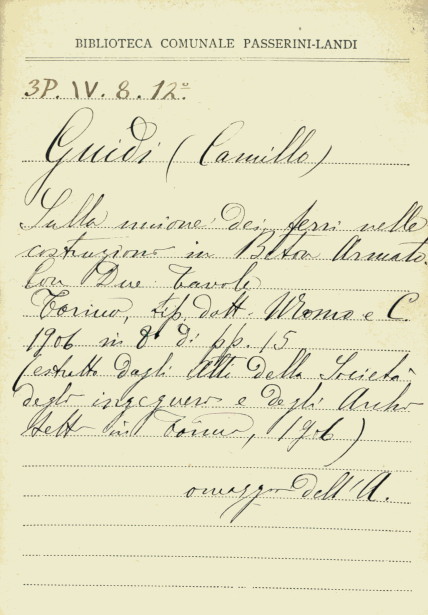 BIBLIOTECA COMUNALE PASSERINI-LANDI
3P. IV. 8. 12º
Guidi (Camillo)
Sulla unione dei ferri nelle
costruzioni in Beton Armato.
Con Due Tavole
Torino, tip. dott. e C.
1906 in 8º di pp. 15
(estratto dagli Atti della Società
degli ingegneri e degli Archi
tetti in Torino, 1906)
omaggio dell'A.